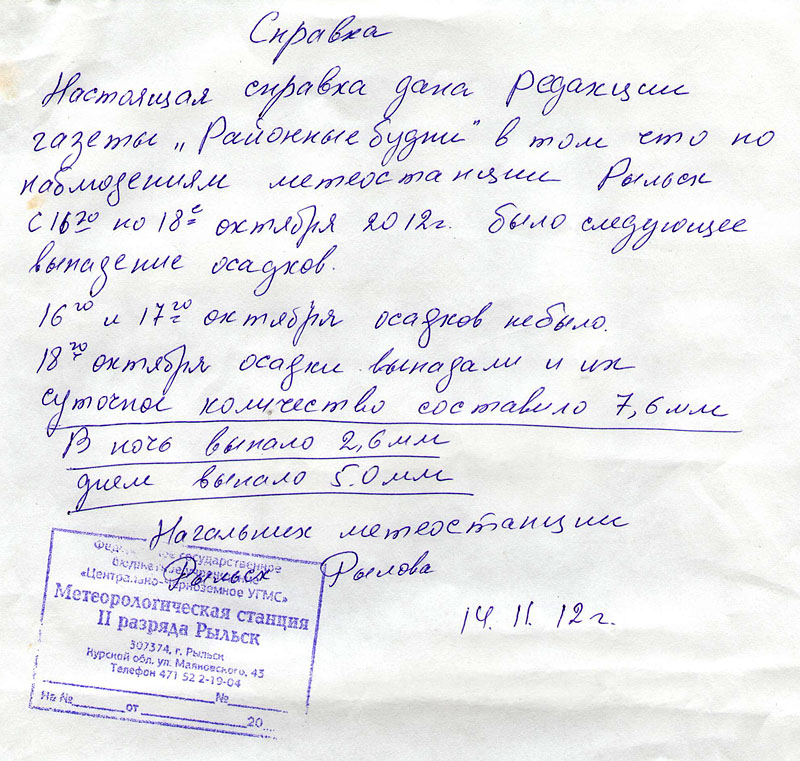 Справка
Настоящая справка дана редакции
газеты „Районные будни" в том что по
наблюдениям метеостанции Рыльск
с 16го по 18е октября 2012г. было следующее
выпадение осадков.
16го и 17го октября осадков небыло.
18го октября осадки выпадали и их
суточное количество составило 7,6мм
В ночь выпало 2,6мм
днем выпало 5.0мм
Начальник метеостанции
Рыльск Рылова
14. 11. 12г.
государственное
бюджетное учреждение
«Центрально-Черноземное УГМС»
Метеорологическая станция
II разряда Рыльск
307374, г. Рыльск
Курской обл. ул. Маяковского, 43
Телефон 471 52 2-19-04
№
На № от 20